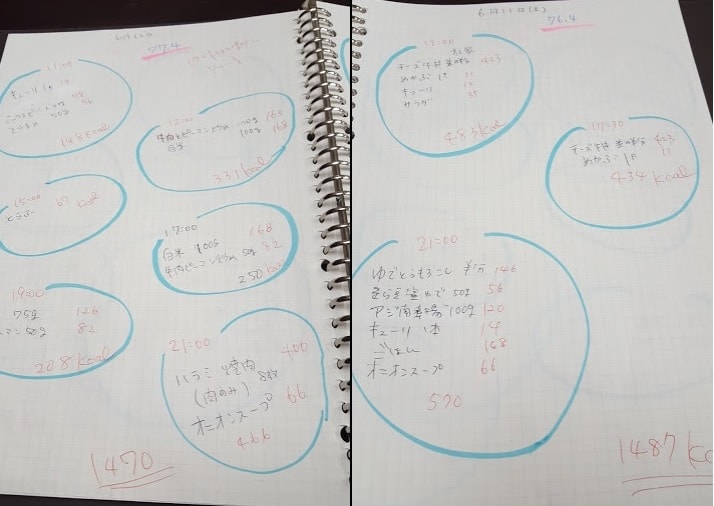 77.4
11:00
キューリ 1本 14
50g 56
148 kcal
12:00
牛肉とピーマン炒め 100g 160
白米 100g 168
331 kcal
15:00
とうふ 67 kcal
17:00
白米 100g 168
牛肉ピーマン炒め 50g 82
250 kcal
19:00
75g 126
50g 82
208 kcal
21:00
ハラミ焼肉 400
(肉のみ) 8枚
オニオンスープ 66
466
1470
6月11日(土)
76.4
12:00
チーズ牛丼 並 423
めかぶ 1P 11
キューリ 14
サラダ 35
483 kcal
17:30
チーズ牛丼 423
めかぶ 1P 11
434 kcal
21:00
ゆでとうもろこし 半分 146
50g 56
アジ 100g 120
キューリ 1本 14
ごはん 168
オニオンスープ 66
570
1487 kc